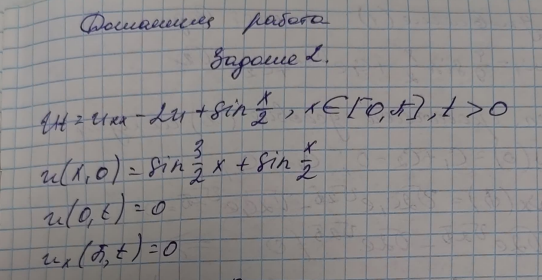 Домашняя работа
Задание 2.
uₜ = uₓₓ - 2u + sin x/2, x ∈ [0, π], t > 0
u(x, 0) = sin 3/2 x + sin x/2
u(0, t) = 0
uₓ(π, t) = 0